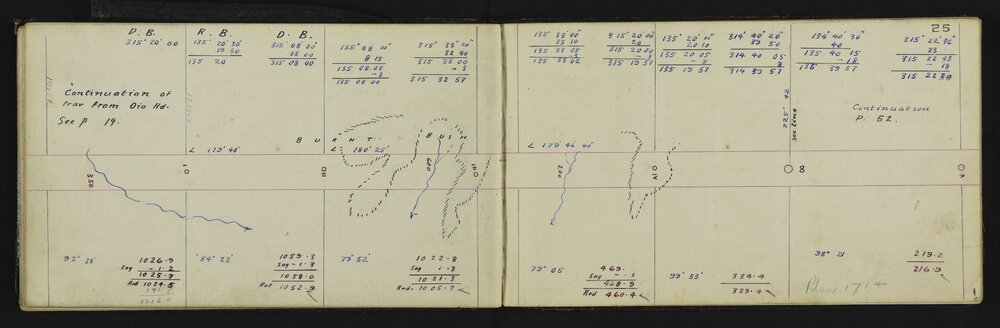 25
D. B.
R. B.
D. B.
315° 20' 00
135° 20' 30"
19 30
135 20
315 08 00"
08 00
315 08 00
135° 08' 00"
8 15
135 08 07
-3
135 08 00
315° 33' 20"
32 40
315 33 00
-3
315 32 57
135° 33' 00"
33 10
135 33 05
135 33 02
315° 20' 00"
20
315 20 00
315 19 57
135° 20' 00"
20 10
135 20 05
-8
135 19 57
314° 40' 20"
39 50
314 40 05
8
314 39 57
134° 40' 30"
40
135 40 15
-18
39 57
315° 22' 36"
23
-18
315 22 30
Continuation of
trav from Oio Rd.
See p 19.
BURNT BUSH
L 179° 48'
L 180° 25'
L 179° 46' 40"
225° 42
see line
Continuation
P. 52.
350
600
200
8
92° 38'
1026.9
Sag - 1.2
1025.7
Red 1024.5
84° 23'
1059.3
Sag - 1.3
1058.0
Red 1052.9
79° 52'
1022.8
Sag 1.3
1021.3
Red. 1005.7
79° 05'
469.
Sag - .1
468.9
Red 460.4
99° 53'
334.4
329.4
98° 21
219.2
216.9
Plan 1714